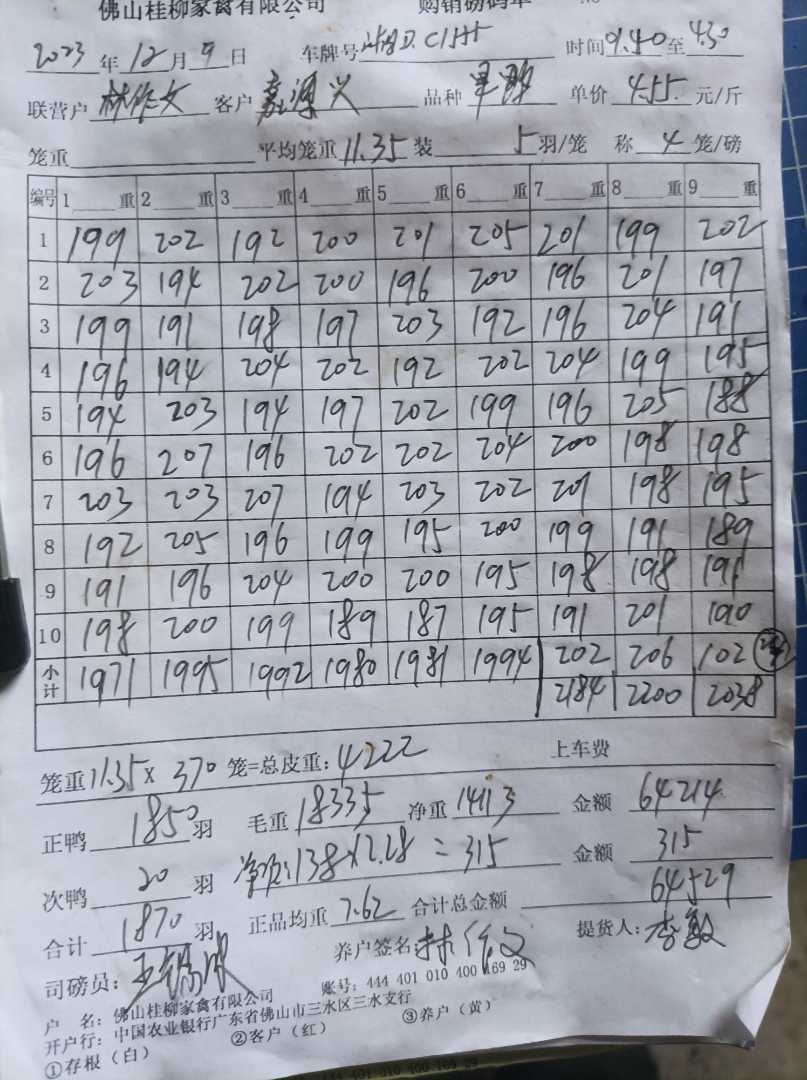 佛山桂柳家禽有限公司 购销磅码单
2023年12月9日 车牌号 时间9.40至4.30
联营户林作文 客户嘉源兴 品种 单价4.55元/斤
笼重 平均笼重11.35装5羽/笼 称4笼/磅
编号 1 重 2 重 3 重 4 重 5 重 6 重 7 重 8 重 9 重
1 199 202 192 200 201 205 201 199 202
2 203 194 202 200 196 200 196 201 197
3 199 191 198 197 203 192 196 204 191
4 196 194 204 202 192 202 204 199 195
5 194 203 194 197 202 199 196 205 188
6 196 207 196 202 202 204 200 198 198
7 203 203 207 194 203 202 201 198 195
8 192 205 196 199 195 200 199 191 189
9 191 196 204 200 200 195 198 198 191
10 198 200 199 189 187 195 191 201 190
小计 1971 1995 1992 1980 1981 1994 202 206 102
2184 2200 2038
笼重11.35×370笼=总皮重:4222 上车费
正鸭1850羽 毛重18335净重14113金额64214
次鸭20羽 净项:138×2.28=315 金额315
合计1870羽 正品均重7.62合计总金额64529
司磅员: 养户签名:林作文 提货人:李敏
户 名:佛山桂柳家禽有限公司 账号:444 401 010 400 169 29
开户行:中国农业银行广东省佛山市三水区三水支行
①存根(白) ②客户(红) ③养户(黄)